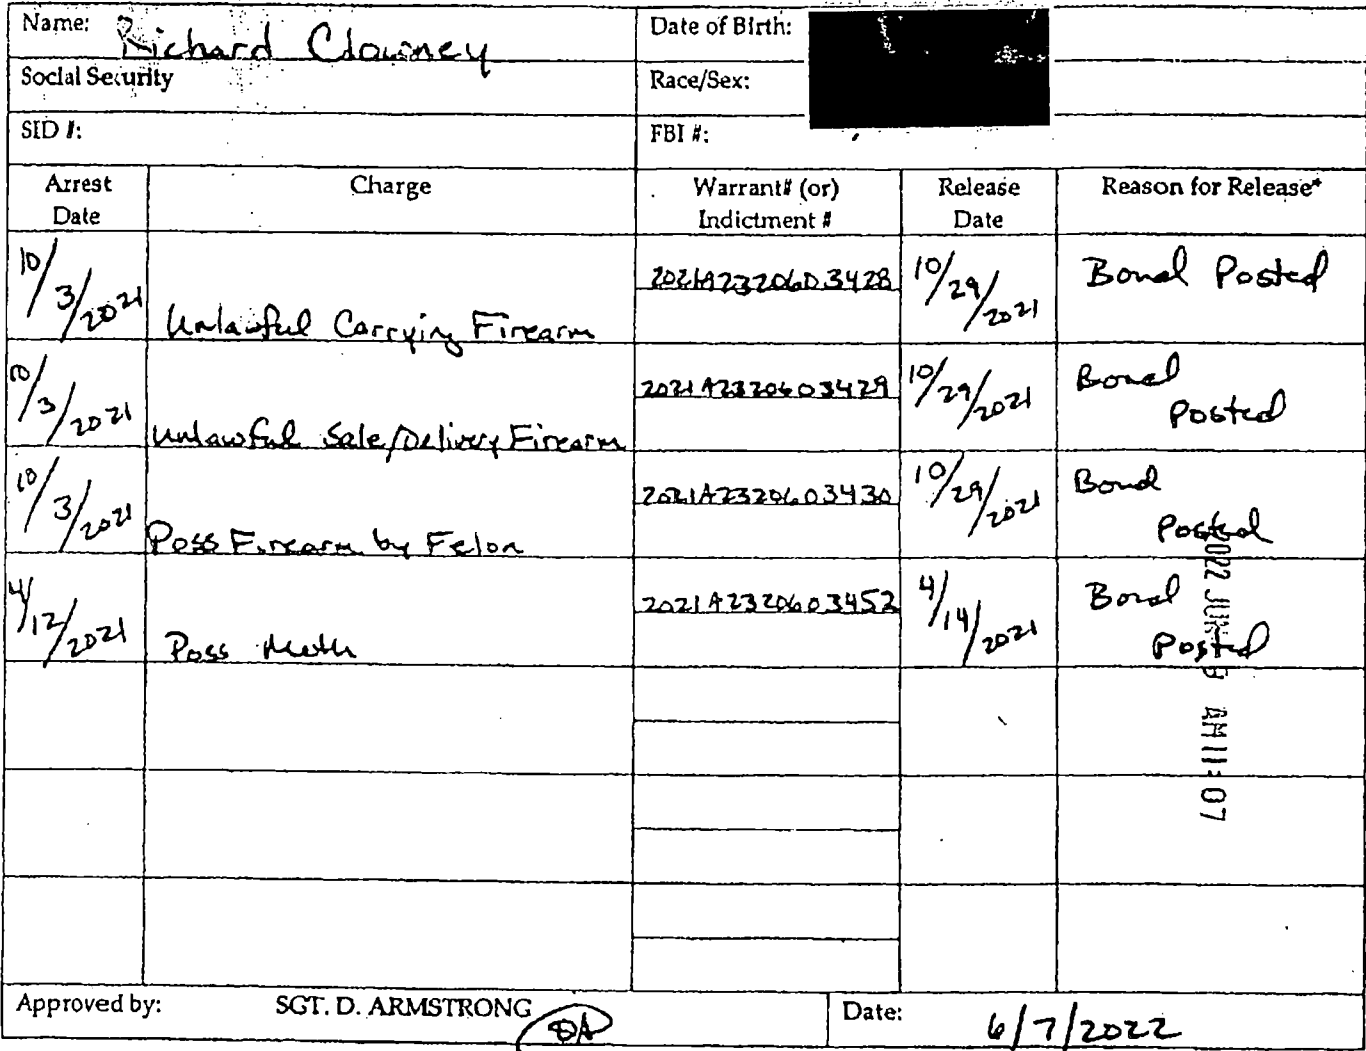 Name: Richard Clowney Date of Birth:
Social Security Race/Sex:
SID #: FBI #:
Arrest Date Charge Warrant# (or) Indictment # Release Date Reason for Release*
10/3/2021 Unlawful Carrying Firearm 2021A2320603428 10/29/2021 Bond Posted
10/3/2021 Unlawful Sale/Delivery Firearm 2021A2320603429 10/29/2021 Bond Posted
10/3/2021 Poss Firearm by Felon 2021A2320603430 10/29/2021 Bond Posted
4/12/2021 Poss Meth 2021A2320603452 4/14/2021 Bond Posted
022 JUN AM 11:07
Approved by: SGT. D. ARMSTRONG DA Date: 6/7/2022